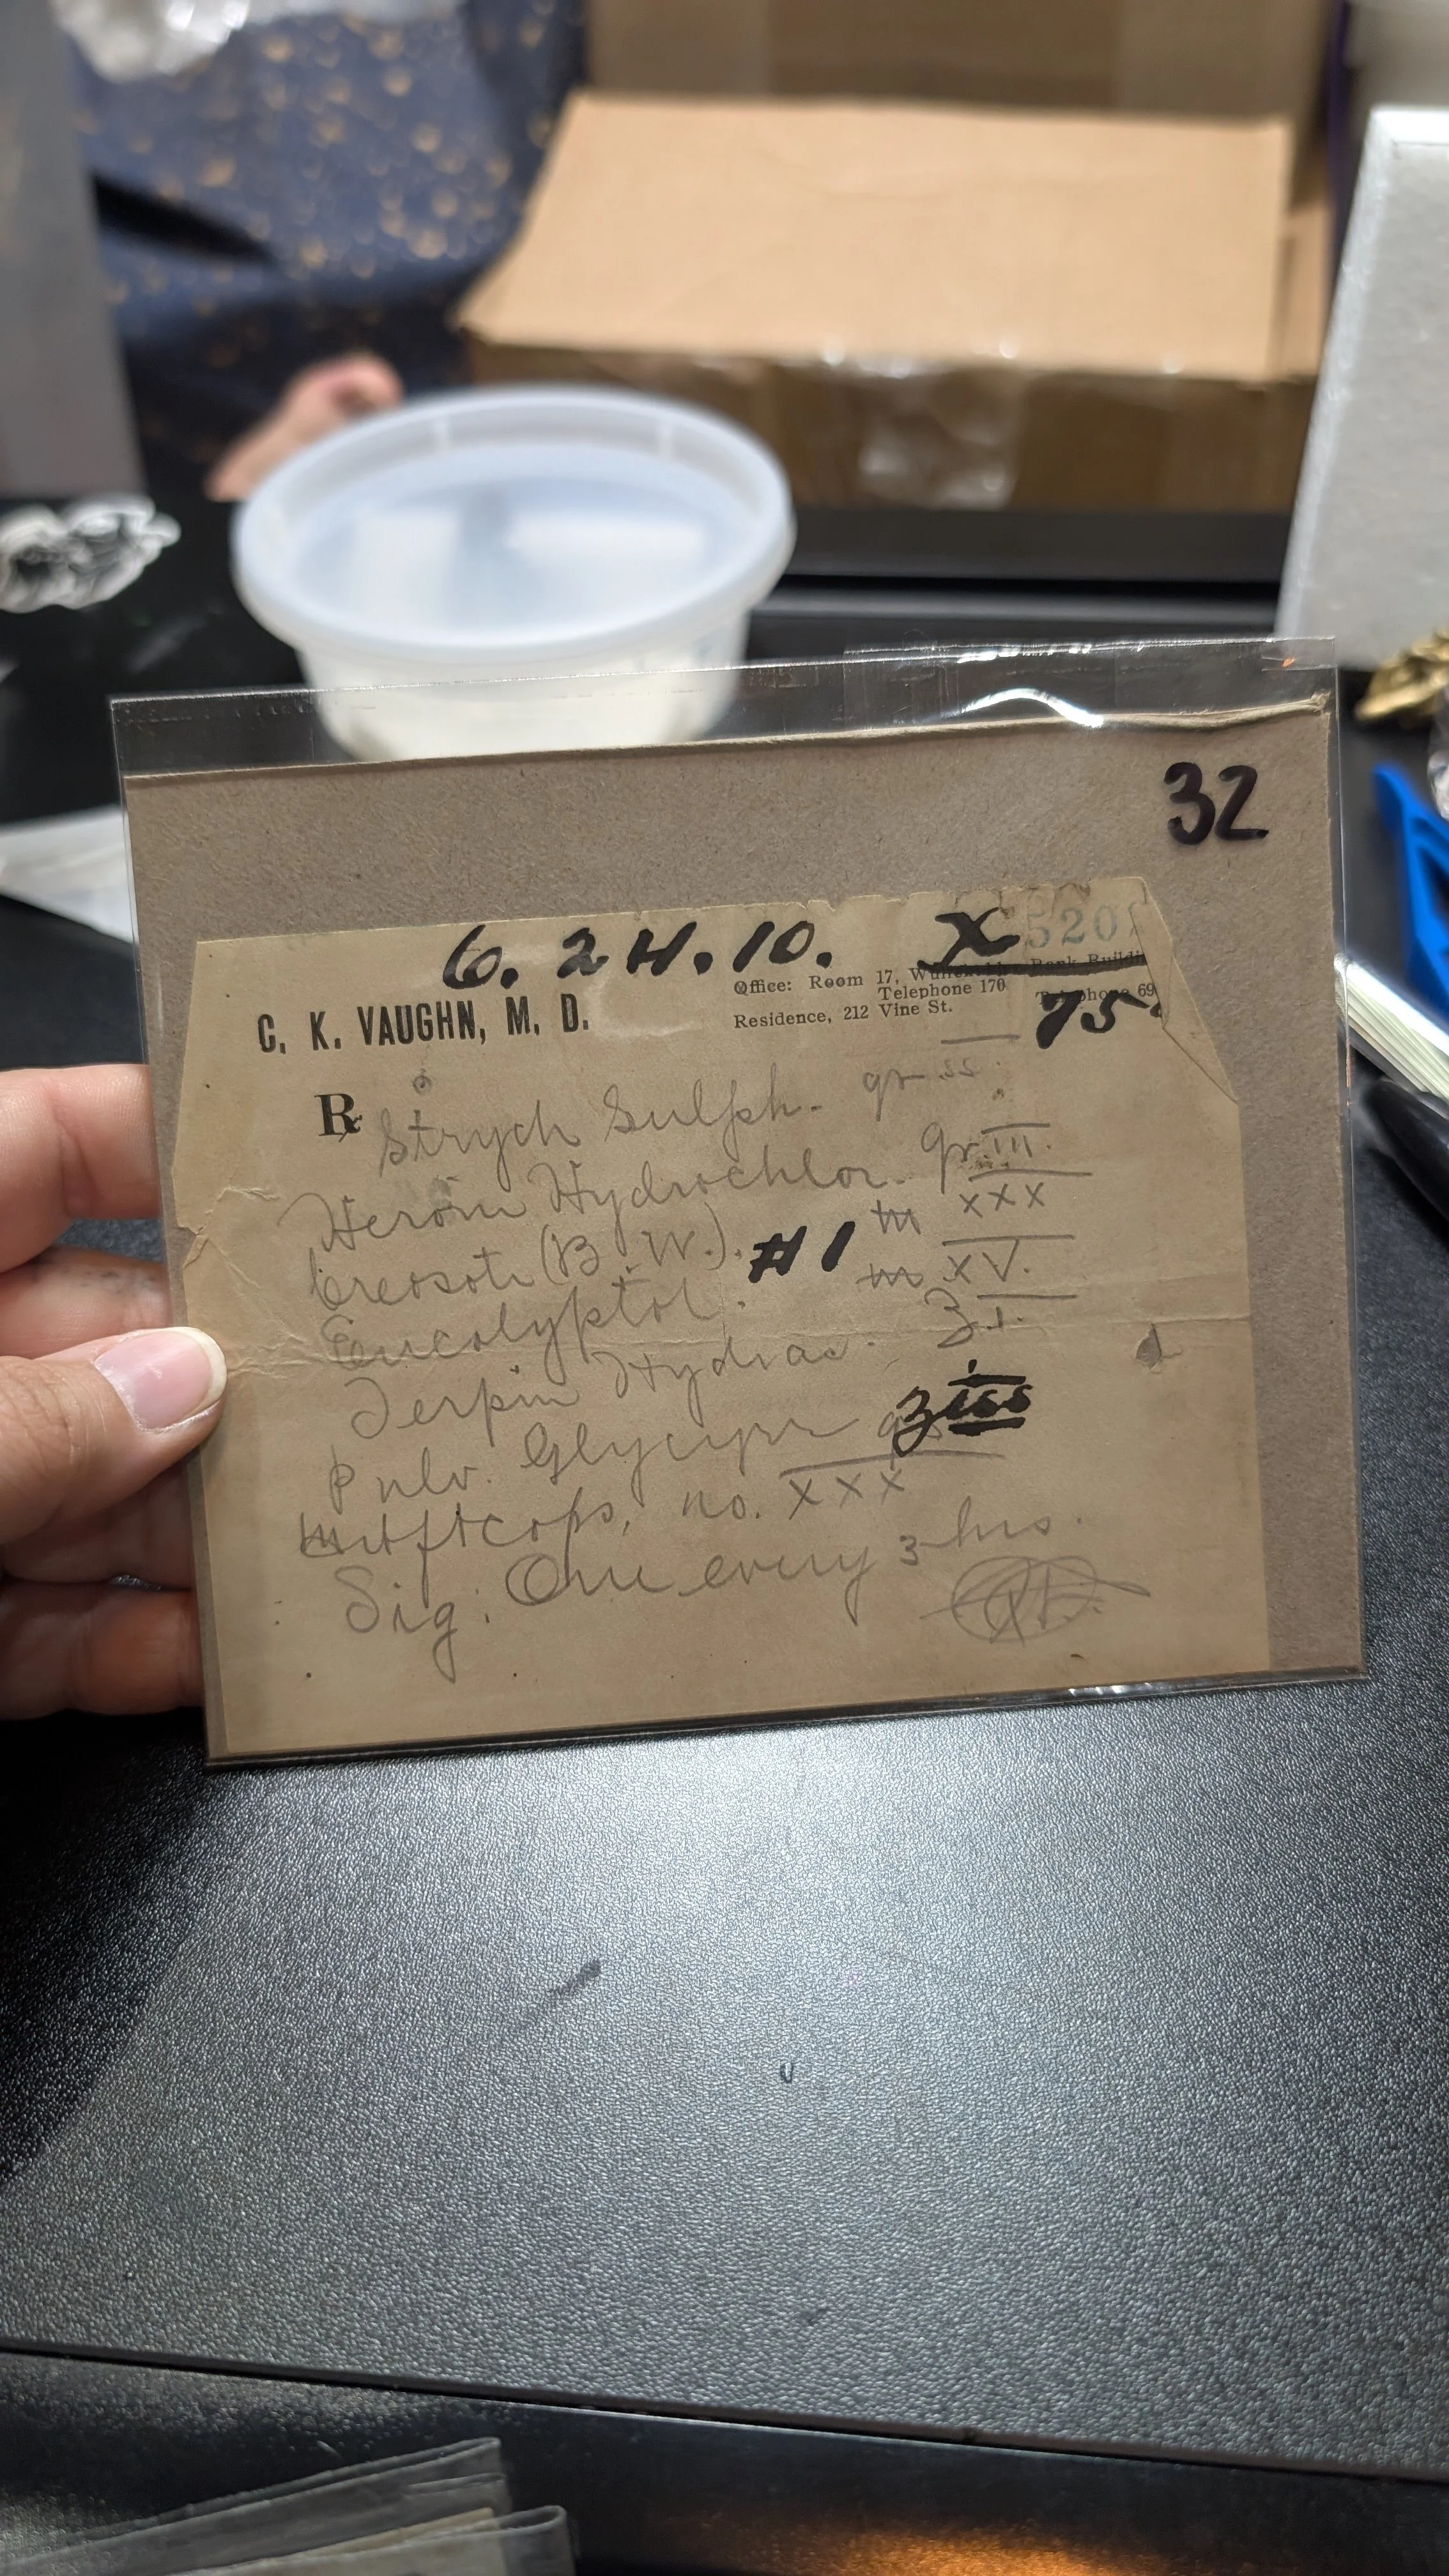 32
6. 24. 10. X 5201
Office: Room 17, Bank Buildi
C. K. VAUGHN, M. D. Telephone 170 Telephone 69
Residence, 212 Vine St. 75
℞ Strych Sulph. gr ss
Heroin Hydrochlor. gr III.
Creosote (B.W.). #1 ♏ XXX
Eucalyptol. ♏ XV.
Terpin Hydras. ʒ i.
Pulv. Glycyrr ʒ iss
ft caps, no. XXX
Sig: One every 3 hrs.